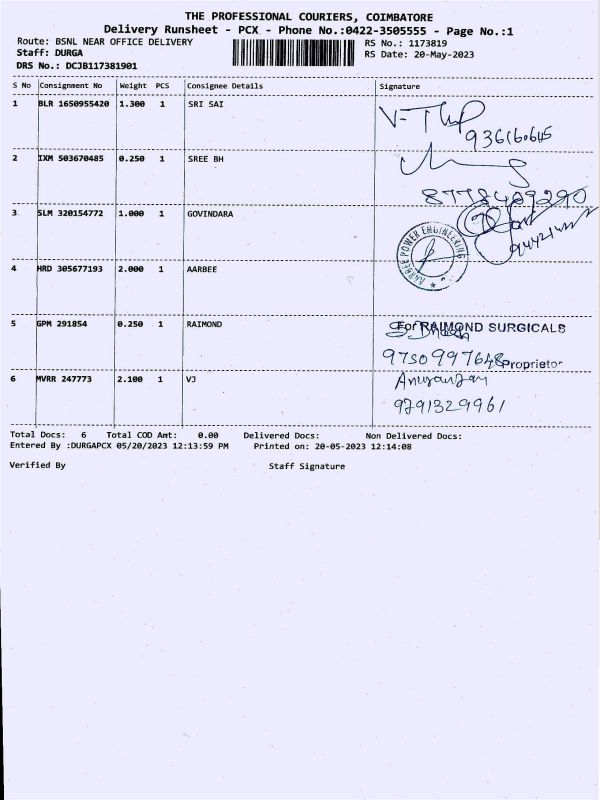 THE PROFESSIONAL COURIERS, COIMBATORE
Delivery Runsheet - PCX - Phone No.:0422-3505555 - Page No.:1
Route: BSNL NEAR OFFICE DELIVERY RS No.: 1173819
Staff: DURGA RS Date: 20-May-2023
DRS No.: DCJB117381901
S No Consignment No Weight PCS Consignee Details Signature
1 BLR 1650955420 1.300 1 SRI SAI
2 IXM 503670485 0.250 1 SREE BH
8778409290
3 SLM 320154772 1.000 1 GOVINDARA
AARBEE POWER ENGINEERING
4 HRD 305677193 2.000 1 AARBEE
5 GPM 291854 0.250 1 RAIMOND For RAIMOND SURGICALS
9750997648 Proprietor
6 MVRR 247773 2.100 1 VJ
9791329961
Total Docs: 6 Total COD Amt: 0.00 Delivered Docs: Non Delivered Docs:
Entered By :DURGAPCX 05/20/2023 12:13:59 PM Printed on: 20-05-2023 12:14:08
Verified By Staff Signature